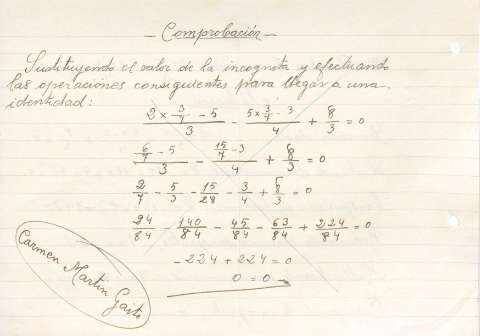 - Comprobación -
Sustituyendo el valor de la incognita y efectuando
las operaciones consiguientes para llegar a una
identidad:
(2 × 3/7 - 5)/3 - (5 × 3/7 - 3)/4 + 8/3 = 0
(6/7 - 5)/3 - (15/7 - 3)/4 + 8/3 = 0
2/7 - 5/3 - 15/28 - 3/4 + 8/3 = 0
24/84 - 140/84 - 45/84 - 63/84 + 224/84 = 0
- 224 + 224 = 0
0 = 0
Carmen Martin Gaite